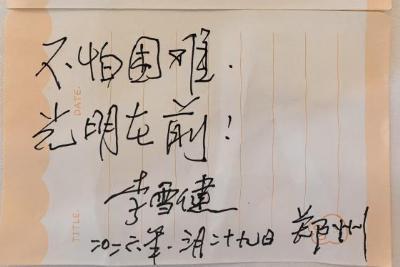 不怕困难.
光明在前!
李雪健
二〇二六年.三月二十九日 郑州
DATE:
TITLE: